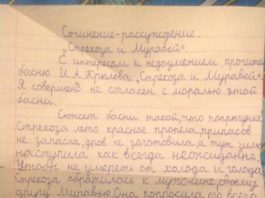 Сочинение-рассуждение.
„Стрекоза и Муравей".
С интересом и недоумением прочита
басню И.А.Крылова „Стрекоза и Муравей".
Я совершенно не согласен с моралью этой
басни.
Сюжет басни такой, что попрыгунья
Стрекоза лето красное пропела, припасов
не запасла, дров не заготовила, а тут зима
наступила как всегда неожиданно.
Чтобы не умереть от холода и голода
Стрекоза обратилась к мужчине, своему
другу Муравью. Она попросила то всего